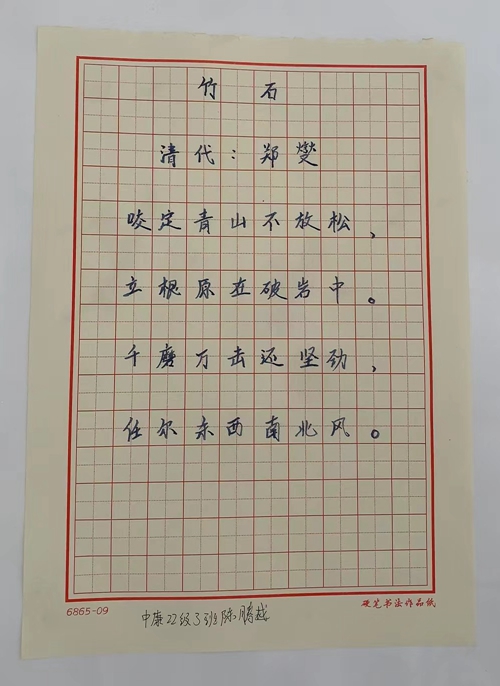 竹石
清代：郑燮
咬定青山不放松，
立根原在破岩中。
千磨万击还坚劲，
任尔东西南北风。
6865-09
硬笔书法作品纸
中康22级3班陈腾越